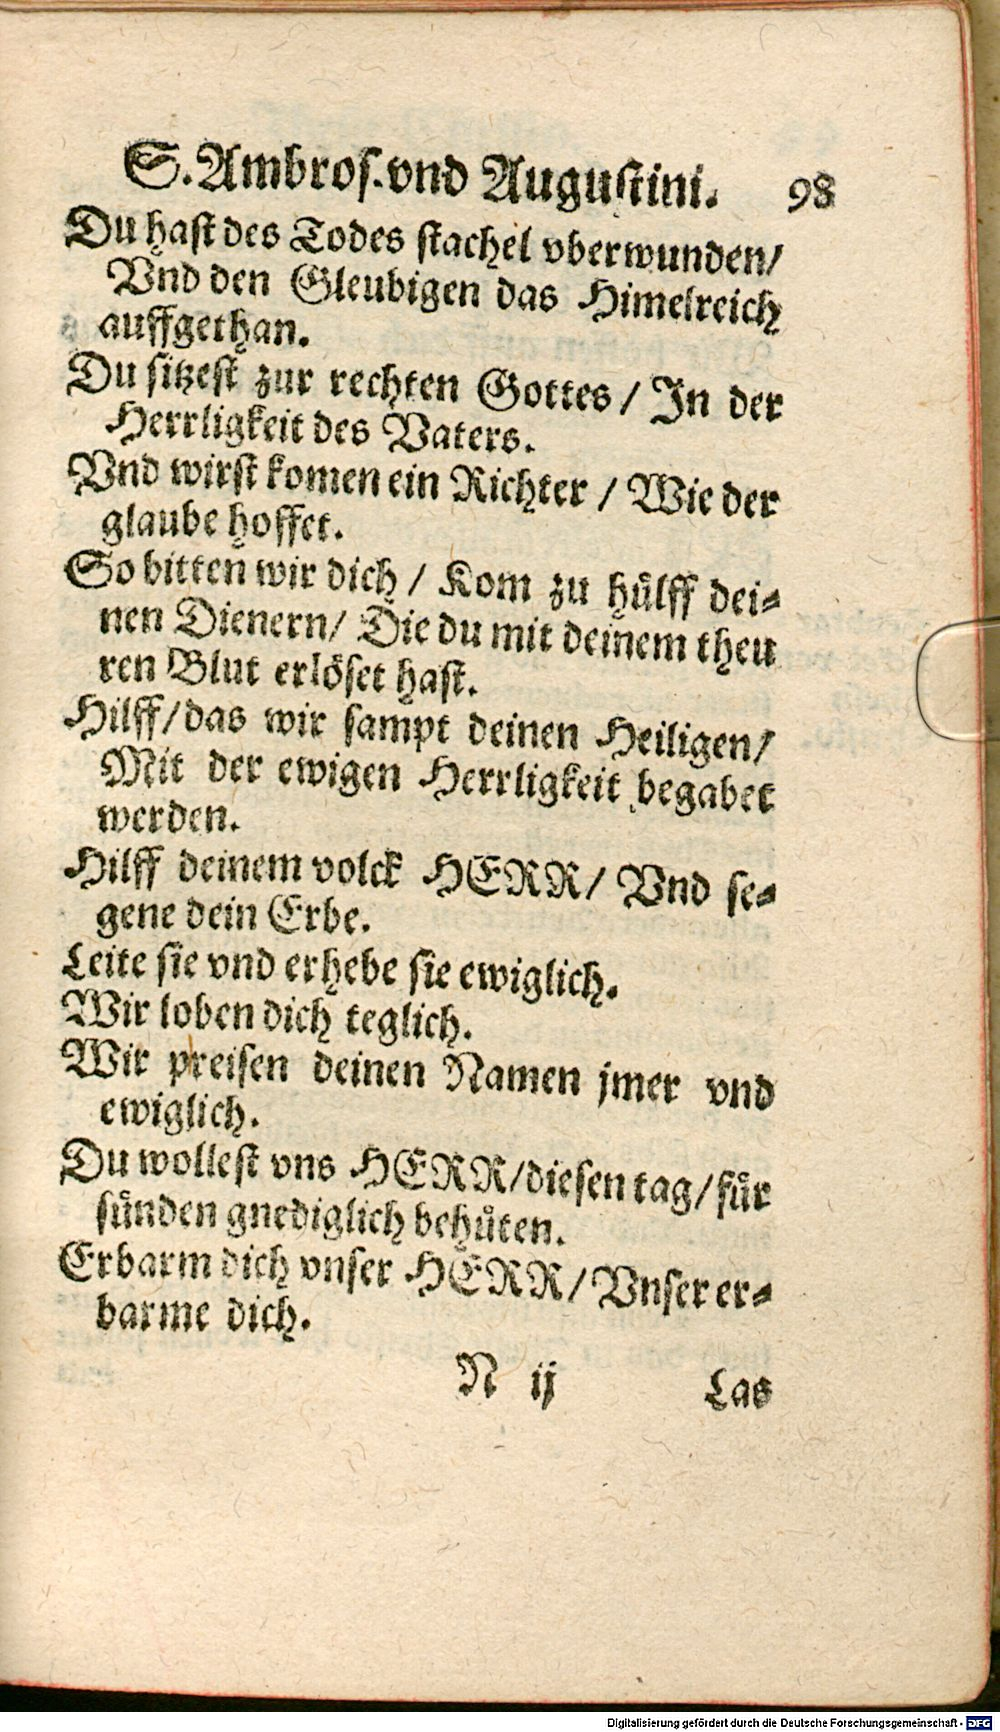 S. Ambros. vnd Augustini. 98
Du hast des Todes stachel vberwunden/
Vnd den Gleubigen das Himelreich
auffgethan.
Du sitzest zur rechten Gottes / In der
Herrligkeit des Vaters.
Vnd wirst komen ein Richter / Wie der
glaube hoffet.
So bitten wir dich / Kom zu hülff dei-
nen Dienern/ Die du mit deinem theu
ren Blut erlöset hast.
Hilff/das wir sampt deinen Heiligen/
Mit der ewigen Herrligkeit begabet
werden.
Hilff deinem volck HERR/ Vnd se-
gene dein Erbe.
Leite sie vnd erhebe sie ewiglich.
Wir loben dich teglich.
Wir preisen deinen Namen jmer vnd
ewiglich.
Du wollest vns HERR/diesen tag/für
sünden gnediglich behüten.
Erbarm dich vnser HERR/Vnser er-
barme dich.
N ij Las
Digitalisierung gefördert durch die Deutsche Forschungsgemeinschaft - DFG